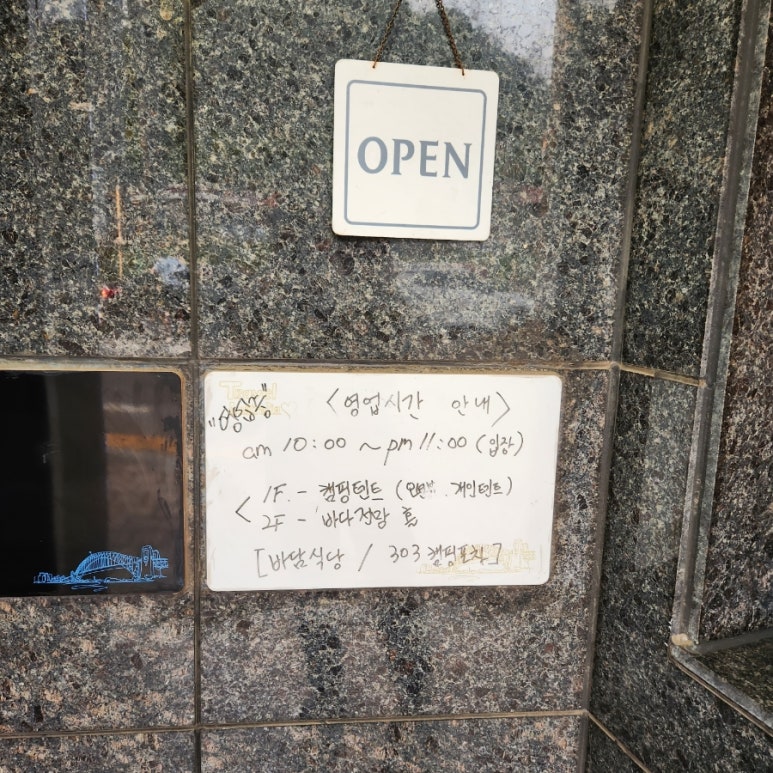 OPEN
"영업중"
<영업시간 안내>
am 10:00 ~ pm 11:00 (입장)
1F - 캠핑텐트 ( . 개인텐트)
2F - 바다전망 홀
[바담식당 / 303 캠핑포차]